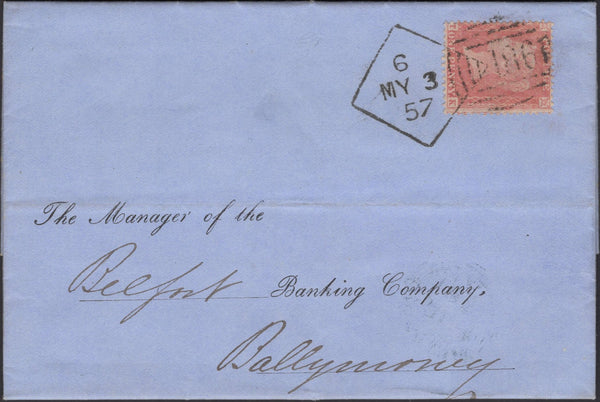 6
MY 3
57
The Manager of the
Belfast Banking Company,
Ballymoney